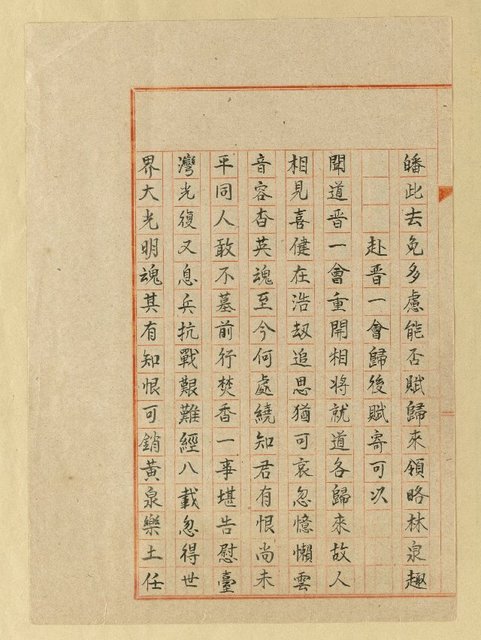 皤此去免多慮能否賦歸來領略林泉趣
赴晋一會歸後賦寄可以
聞道晋一會重開相將就道各歸來故人
相見喜健在浩刼追思猶可哀忽憶懶雲
音容杳英魂至今何處繞知君有恨尚未
平同人敢不墓前行焚香一事堪告慰臺
灣光復又息兵抗戰艱難經八載忽得世
界大光明魂其有知恨可銷黃泉樂土任